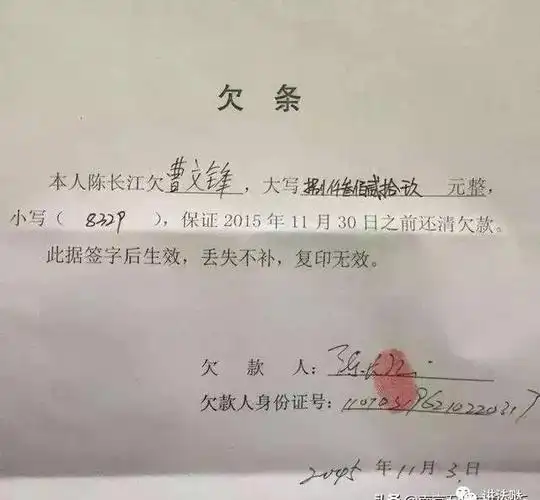 欠 条
本人陈长江欠曹文锋，大写捌仟叁佰贰拾玖 元整，
小写（ 8329 ），保证 2015 年 11 月 30 日之前还清欠款。
此据签字后生效，丢失不补，复印无效。
欠 款 人：陈长江
欠款人身份证号：
2015 年 11 月 3 日
讲法哒